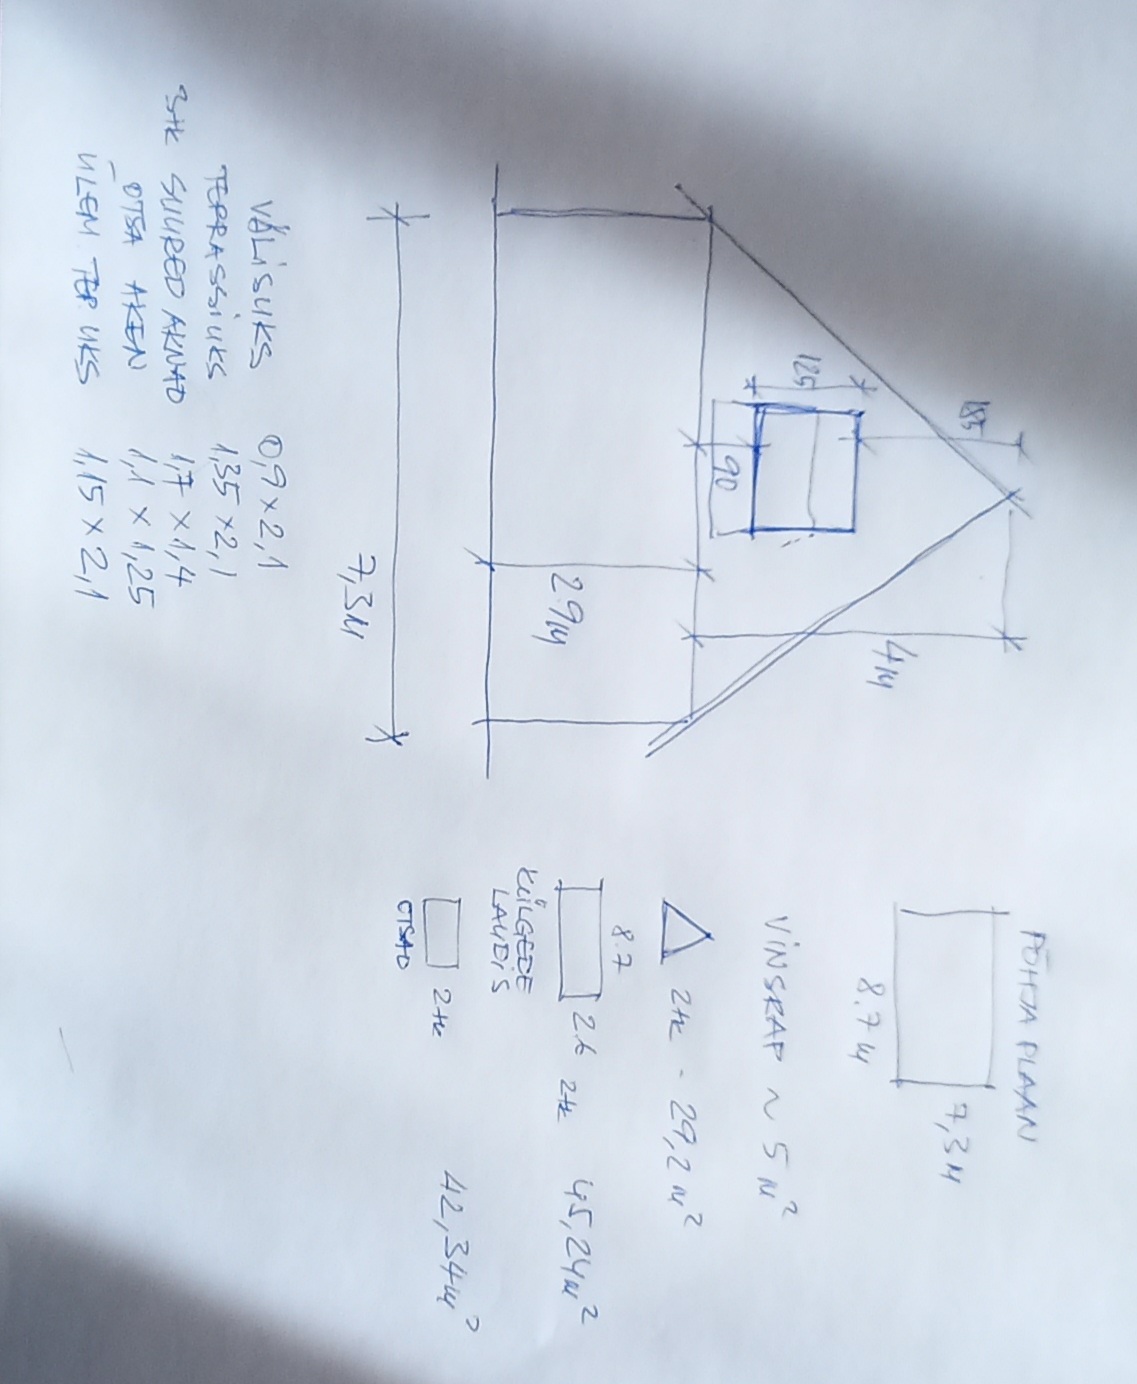 185
125
90
4M
2.9M
7,3M
VÄLISUKS 0,9 × 2,1
TERRASSIUKS 1,35 × 2,1
3tk SUURED AKNAD 1,7 × 1,4
OTSA AKEN 1,1 × 1,25
ÜLEM. TER. UKS 1,15 × 2,1
PÕHJA PLAAN
7,3M
8.7M
VINSKAP ~ 5 M²
2tk - 29,2 M²
8.7
2.6 2tk 45,24 M²
KÜLGEDE
LAUDIS
2tk 42,34 M²
OTSAD